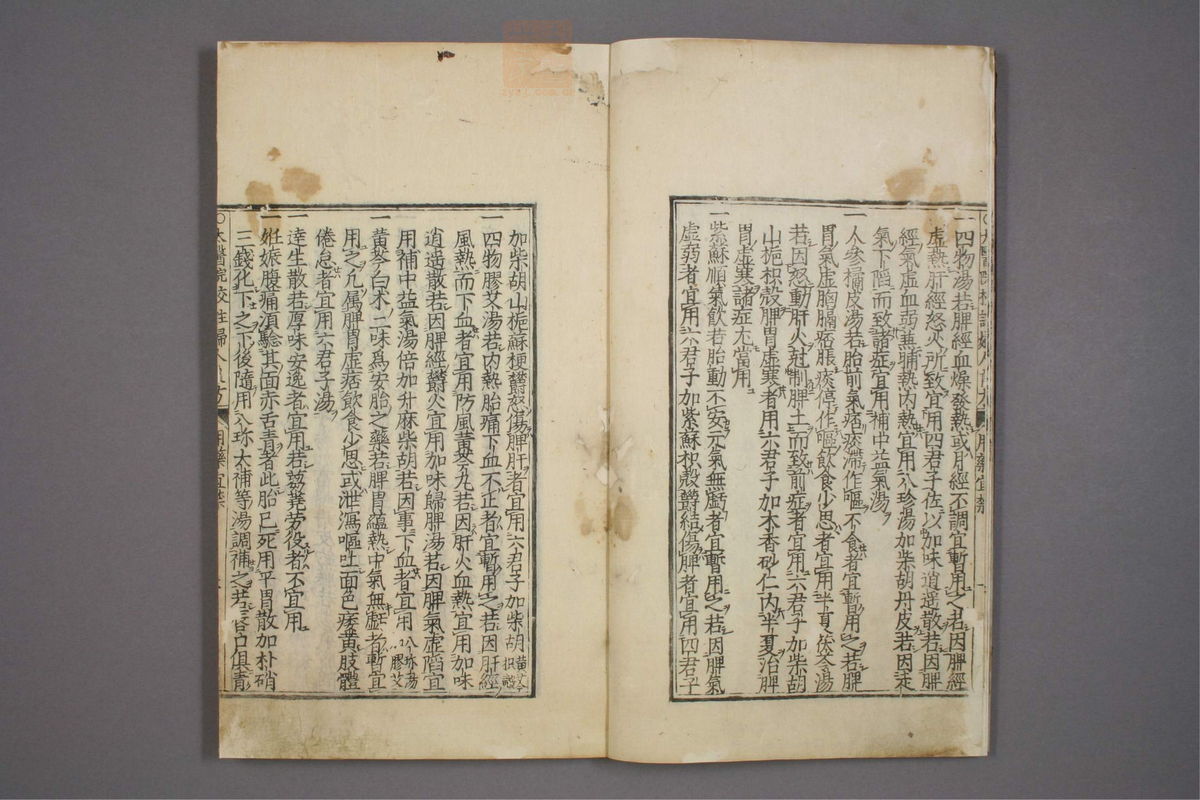 一四物湯若脾經血燥發熱或月經不調宜暫用之若因脾經
虛熱肝經怒火所致宜用四君子佐以加味逍遙散若因脾
經氣虛血弱無晡熱內熱宜用八珍湯加柴胡丹皮若因
氣下陷而致諸症宜用補中益氣湯
一人參橘皮湯若胎前氣痞痰滯作嘔不食者宜暫用之若脾
胃氣虛胸膈痞脹痰停作嘔飲食少思者宜用半夏茯苓湯
若因怒動肝火尅制脾土而致前症者宜用六君子加柴胡
山梔枳殼脾胃虛寒者用六君子加木香砂仁內半夏治脾
胃虛寒諸症尤當用
一紫蘇順氣飲若胎動不安元氣無虧者宜暫用之若因脾氣
虛弱者宜用六君子加紫蘇枳殼鬱結傷脾者宜用四君子
加柴胡山梔蘇梗鬱怒傷脾肝者宜用六君子加柴胡黃芩枳殼
一四物膠艾湯若內熱胎痛下血不正者宜暫用之若因肝經
風熱而下血者宜用防風黃芩丸若因肝火血熱宜用加味
逍遙散若因脾經鬱火宜用加味歸脾湯若因脾氣虛陷宜
用補中益氣湯倍加升麻柴胡若因事下血者宜用八珍湯膠艾
一黃芩白术二味爲安胎之藥若脾胃蘊熱中氣無虧者暫宜
用之凡属脾胃虛痞飲食少思或泄瀉嘔吐面色痿黄肢體
倦怠者宜用六君子湯
一達生散若厚味安逸者宜用若蒭蕘劳役者不宜用
一姙娠腹痛湏驗其面赤舌青者此胎已死用平胃散加朴硝
三錢化下之下後隨用八珍大補等湯調補之若唇口俱青
太醫院校註婦人良方 用藥宜禁